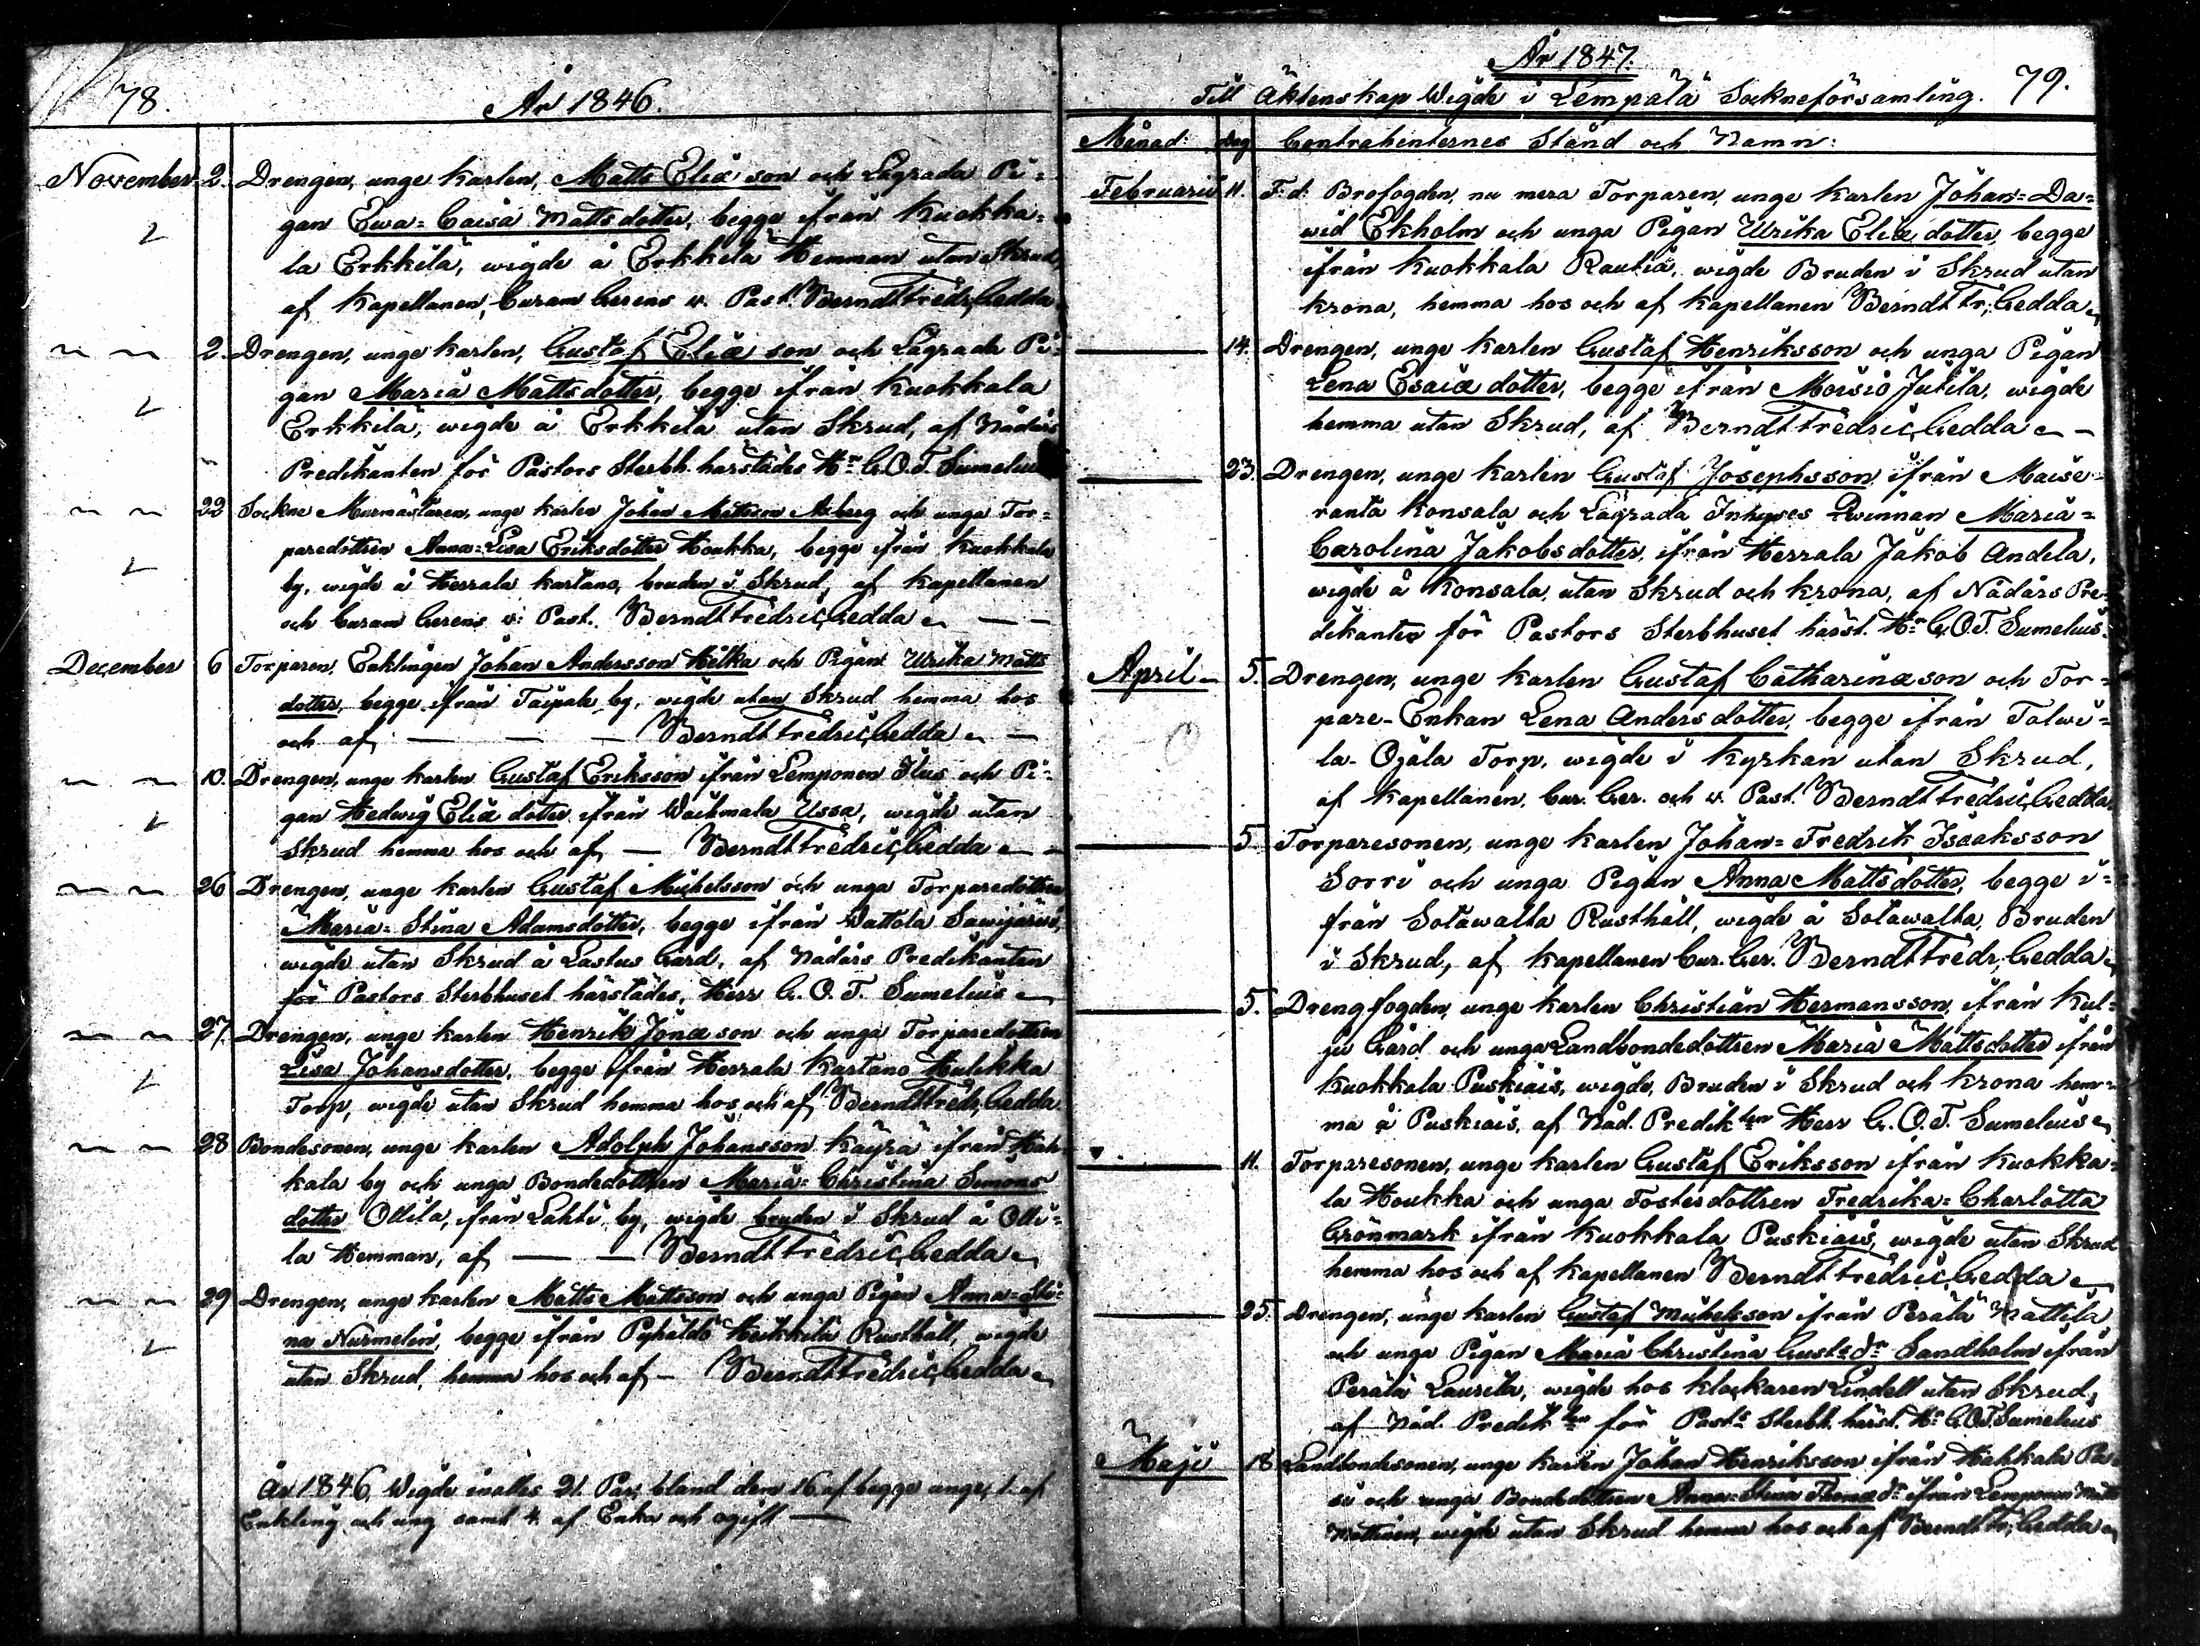 78.
År 1846.
November 2. Drengen, unge karlen, Matts Eliæ son och Lägrada Pi=
gan Ewa=Caisa Matts dotter, begge ifrån Kuokka=
la Erkkilä, wigde å Erkkilä Hemman utan Skrud,
af Kapellanen, Curam Gerens v. Past. Berndt Fredr. Gedda
2. Drengen, unge karlen, Gustaf Eliæ son och Lägrada Pi=
gan Maria Mattsdotter, begge ifrån Kuokkala
Erkkilä, wigde å Erkkilä utan Skrud, af Nådårs
Predikanten för Pastors Sterbh. härstädes Hr G. O. T. Sumelius
22 Sockne Murmästaren, unge karlen Johan Mattsson Åberg och unga Tor=
paredottren Anna=Lisa Eriksdotter Houkka, begge ifrån Kuokkala
by, wigde å Herrala kartano, bruden i Skrud, af Kapellanen
och Curam Gerens v: Past. Berndt Fredric Gedda
December 6 Torparen, Enklingen Johan Andersson Hilka och Pigan Ulrika Matts
dotter, begge ifrån Taipale by, wigde utan Skrud hemma hos
och af — — — Berndt Fredric Gedda
10. Drengen, unge karlen Gustaf Eriksson ifrån Lemponen Ilus och Pi=
gan Hedwig Eliæ dotter ifrån Waihmala Ussa, wigde utan
Skrud hemma hos och af — Berndt Fredric Gedda
26 Drengen, unge karlen Gustaf Michelsson och unga Torparedottren
Maria=Stina Adamsdotter, begge ifrån Wattola Sawijärwi,
wigde utan Skrud å Lastus Gård, af Nådårs Predikanten
för Pastors Sterbhuset härstädes, Herr G. O. T. Sumelius
27. Drengen, unge karlen Henrik Jonæ son och unga Torparedottren
Lisa Johansdotter, begge ifrån Herrala Kartano Hulikka
Torp, wigde utan Skrud hemma hos och af Berndt Fredr. Gedda
28 Bondesonen, unge karlen Adolph Johansson Käyrä ifrån Hah=
kala by och unga Bondedottren Maria=Christina Simons
dotter Ollila, ifrån Lahti by, wigde bruden i Skrud å Olli=
la Hemman, af — — Berndt Fredric Gedda
29 Drengen, unge karlen Matts Mattsson och unga Pigan Anna=Sti=
na Nurmelin, begge ifrån Pyhältö Heikkilä Rusthåll, wigde
utan Skrud, hemma hos och af — Berndt Fredric Gedda
År 1846 Wigde inalles 21. Par, bland dem 16 af begge unge, 1. af
Enkling och ung samt 4 af Enka och ogift —
År 1847. 79.
Till Äktenskap Wigde i Lempälä Sockneförsamling.
Månad: Dag Contrahenternes Stånd och Namn:
Februarii 11. F: d: Brofogden, nu mera Torparen, unge karlen Johan=Da=
wid Ekholm och unga Pigan Ulrika Eliæ dotter, begge
ifrån Kuokkala Rautia, wigde Bruden i Skrud utan
krona, hemma hos och af Kapellanen Berndt Fr. Gedda
14. Drengen, unge karlen Gustaf Henriksson och unga Pigan
Lena Esaiæ dotter, begge ifrån Moisio Jutila, wigde
hemma utan Skrud, af Berndt Fredric Gedda
23. Drengen, unge karlen Gustaf Josephsson, ifrån Maise=
ranta Konsala och Lägrada Inhyses Qwinnan Maria=
Carolina Jakobsdotter, ifrån Herrala Jakob Andila,
wigde å Konsala, utan Skrud och krona, af Nådårs Pre=
dikanten för Pastors Sterbhuset härst. Hr G. O. T. Sumelius
April 5. Drengen, unge karlen Gustaf Catharinæ son och Tor=
pare-Enkan Lena Anders dotter, begge ifrån Talwi=
la-Ojala Torp, wigde i kyrkan utan Skrud,
af Kapellanen, Cur. Ger. och v. Past. Berndt Fredric Gedda
5. Torparesonen, unge karlen Johan=Fredrik Isaaksson
Sorri och unga Pigan Anna Mattsdotter, begge i=
från Sotawalta Rusthåll, wigde å Sotawalta, Bruden
i Skrud, af Kapellanen Cur. Ger. Berndt Fredr. Gedda
5. Drengfogden, unge karlen Christian Hermansson, ifrån Kul=
ju Gård och unga Landbondedottren Maria Mattsdotter ifrån
Kuokkala Puskiais, wigde, Bruden i Skrud och krona hem=
ma å Puskiais, af Nåd. Predikten Herr G. O. T. Sumelius
11. Torparesonen, unge karlen Gustaf Eriksson ifrån Kuokka=
la Houkka och unga Fosterdottren Fredrika=Charlotta
Grönmark ifrån Kuokkala Puskiais, wigde utan Skrud
hemma hos och af Kapellanen Berndt Fredric Gedda
25. Drengen, unge karlen Gustaf Michelsson ifrån Perälä Mattila
och unga Pigan Maria Christina Gusts dr Sandholm ifrån
Perälä Laurila, wigde hos klockaren Lindell utan Skrud,
af Nåd. Predikten för Pasts Sterbh. härst. Hr G.O.T. Sumelius
Maji 18 Landbondesonen, unge karlen Johan Henriksson ifrån Hahkala Pas=
si och unga Bondedottren Anna=Stina Thomæ dr ifrån Lemponen Matts
Mattinen, wigde utan Skrud hemma hos och af Berndt Fr. Gedda